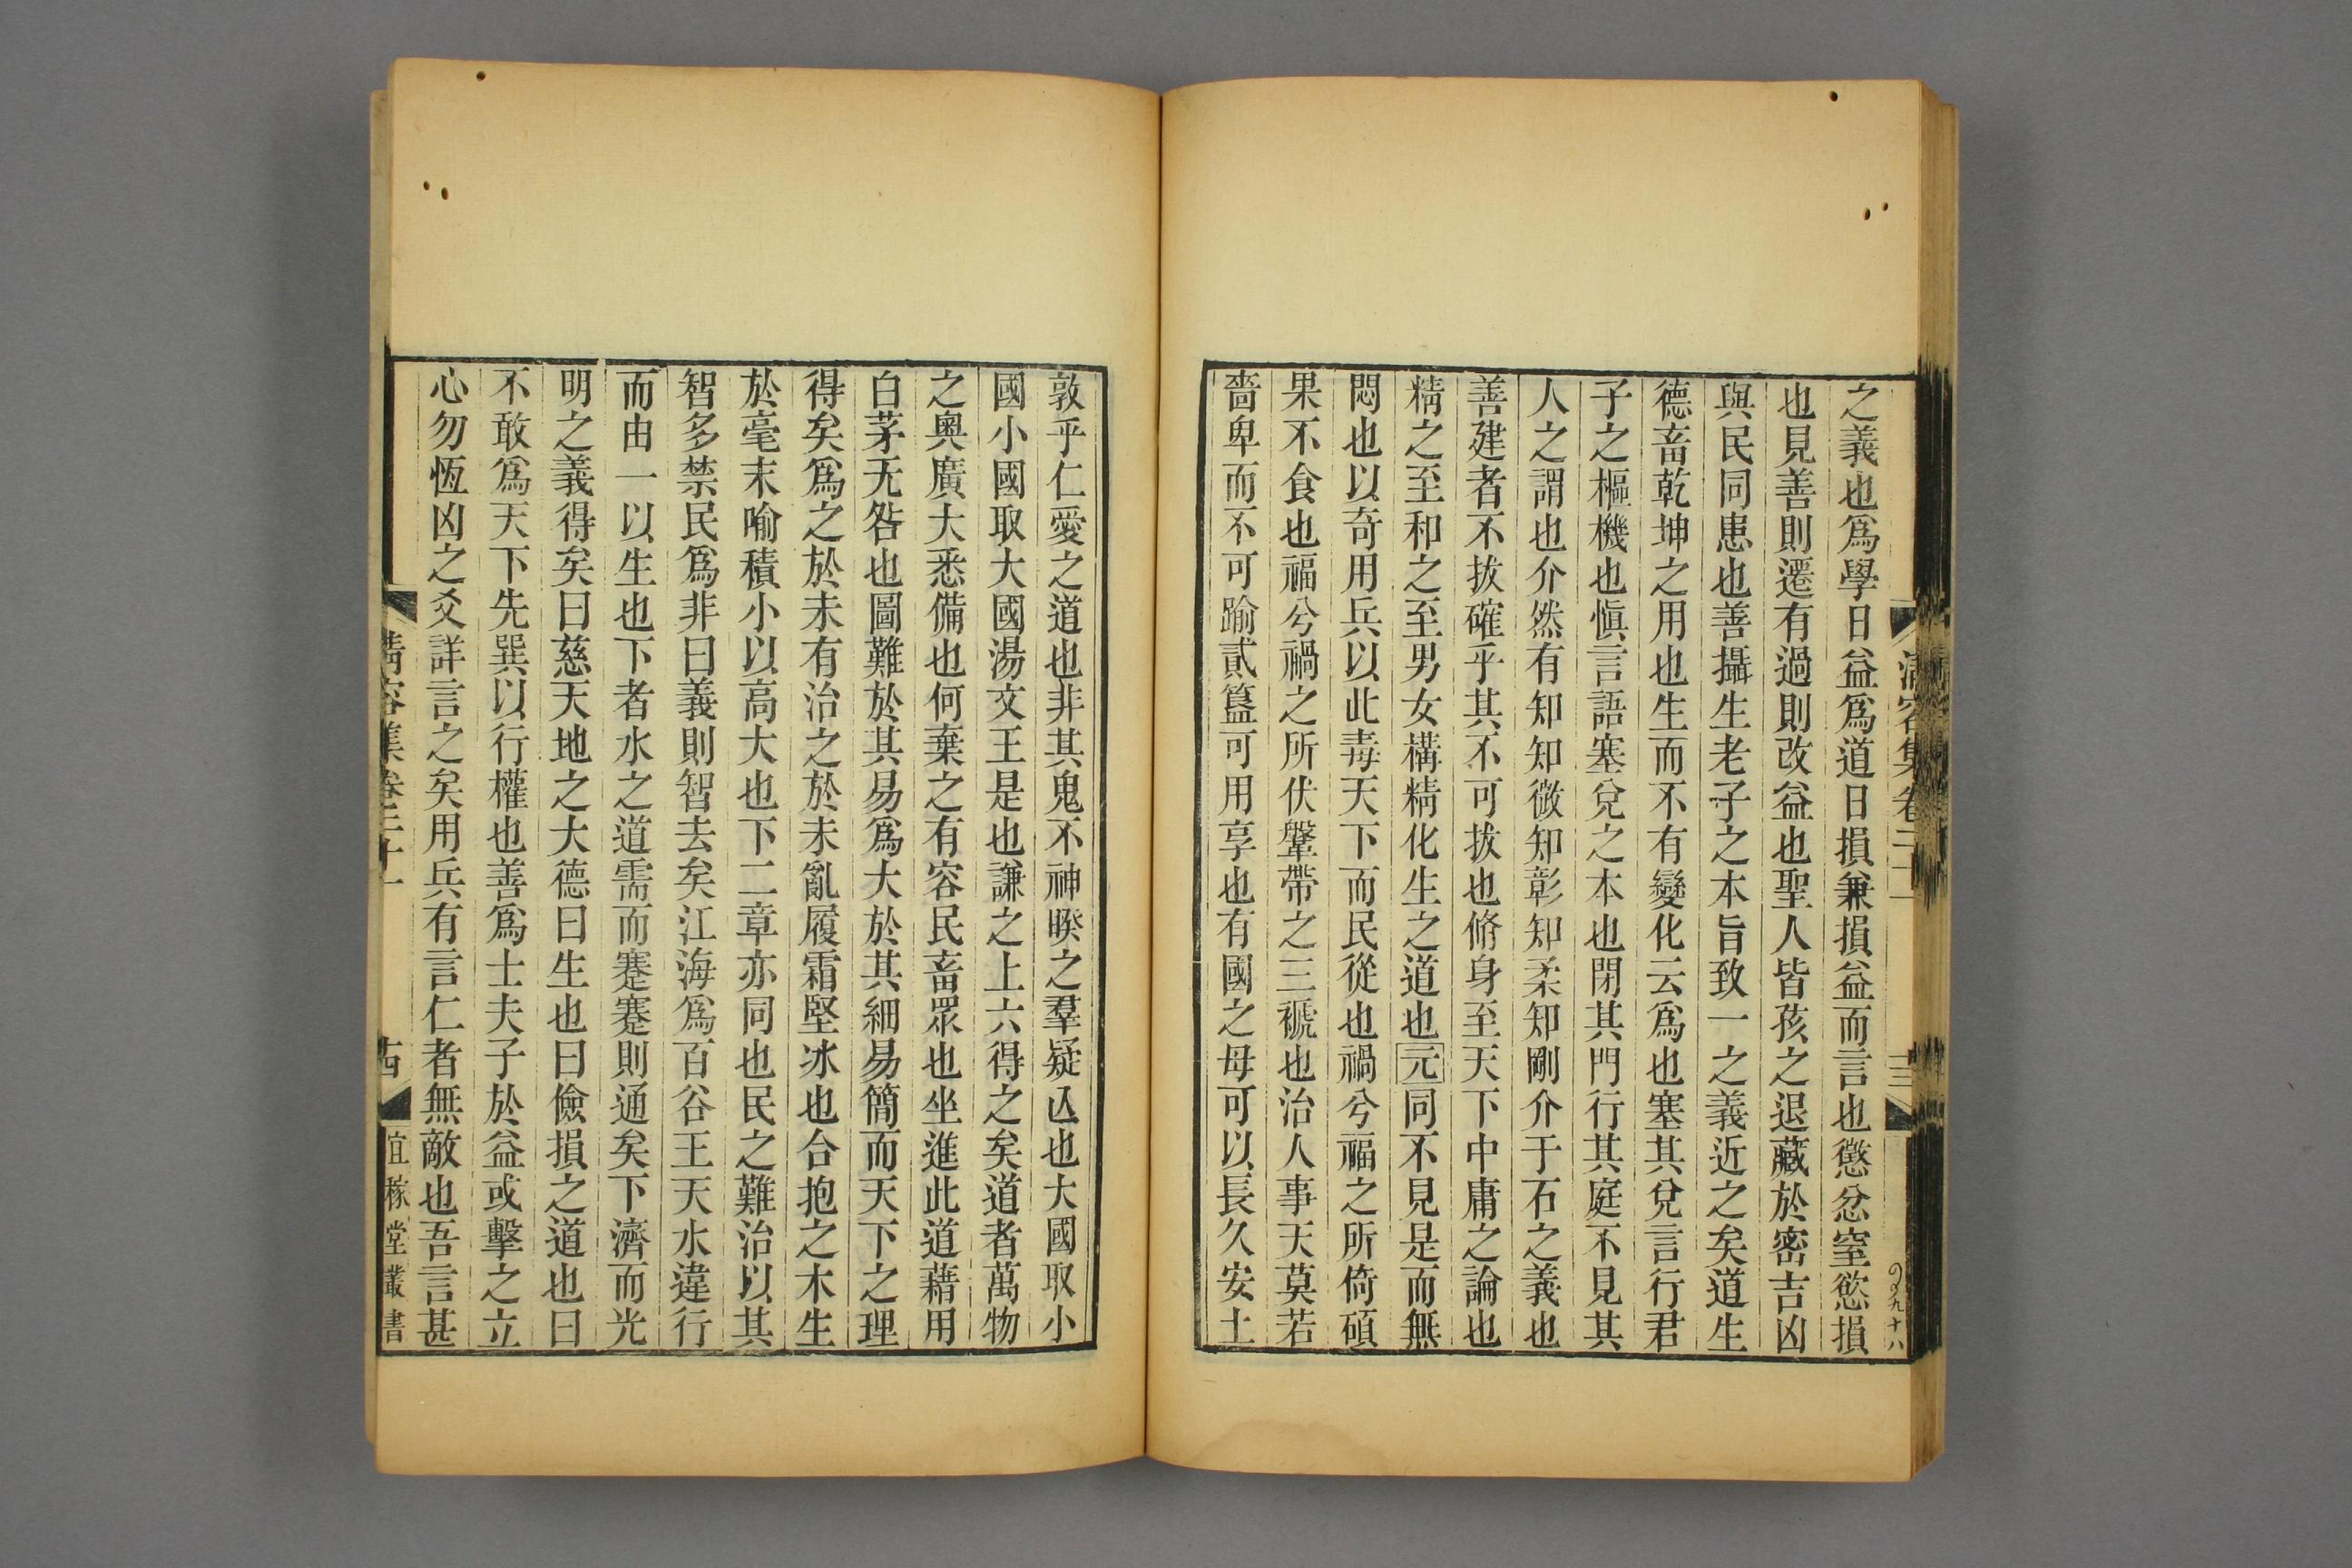 之義也爲學日益爲道日損兼損益而言也懲忿窒慾損
也見善則遷有過則改益也聖人皆孩之退藏於密吉凶
與民同患也善攝生老子之本旨致一之義近之矣道生
德畜乾坤之用也生而不有變化云爲也塞其兌言行君
子之樞機也愼言語塞兌之本也閉其門行其庭不見其
人之謂也介然有知知微知彰知柔知剛介于石之義也
善建者不拔確乎其不可拔也脩身至天下中庸之論也
精之至和之至男女構精化生之道也元同不見是而無
悶也以奇用兵以此毒天下而民從也禍兮福之所倚碩
果不食也福兮禍之所伏鞶帶之三褫也治人事天莫若
嗇卑而不可踰貳簋可用享也有國之母可以長久安土
敦乎仁愛之道也非其鬼不神睽之羣疑亾也大國取小
國小國取大國湯文王是也謙之上六得之矣道者萬物
之奧廣大悉備也何棄之有容民畜眾也坐進此道藉用
白茅无咎也圖難於其易爲大於其細易簡而天下之理
得矣爲之於未有治之於未亂履霜堅冰也合抱之木生
於毫末喻積小以高大也下二章亦同也民之難治以其
智多禁民爲非曰義則智去矣江海爲百谷王天水違行
而由一以生也下者水之道需而蹇蹇則通矣下濟而光
明之義得矣曰慈天地之大德曰生也曰儉損之道也曰
不敢爲天下先巽以行權也善爲士夫子於益或擊之立
心勿恆凶之爻詳言之矣用兵有言仁者無敵也吾言甚
清容集卷二十一
古
宜稼堂叢書